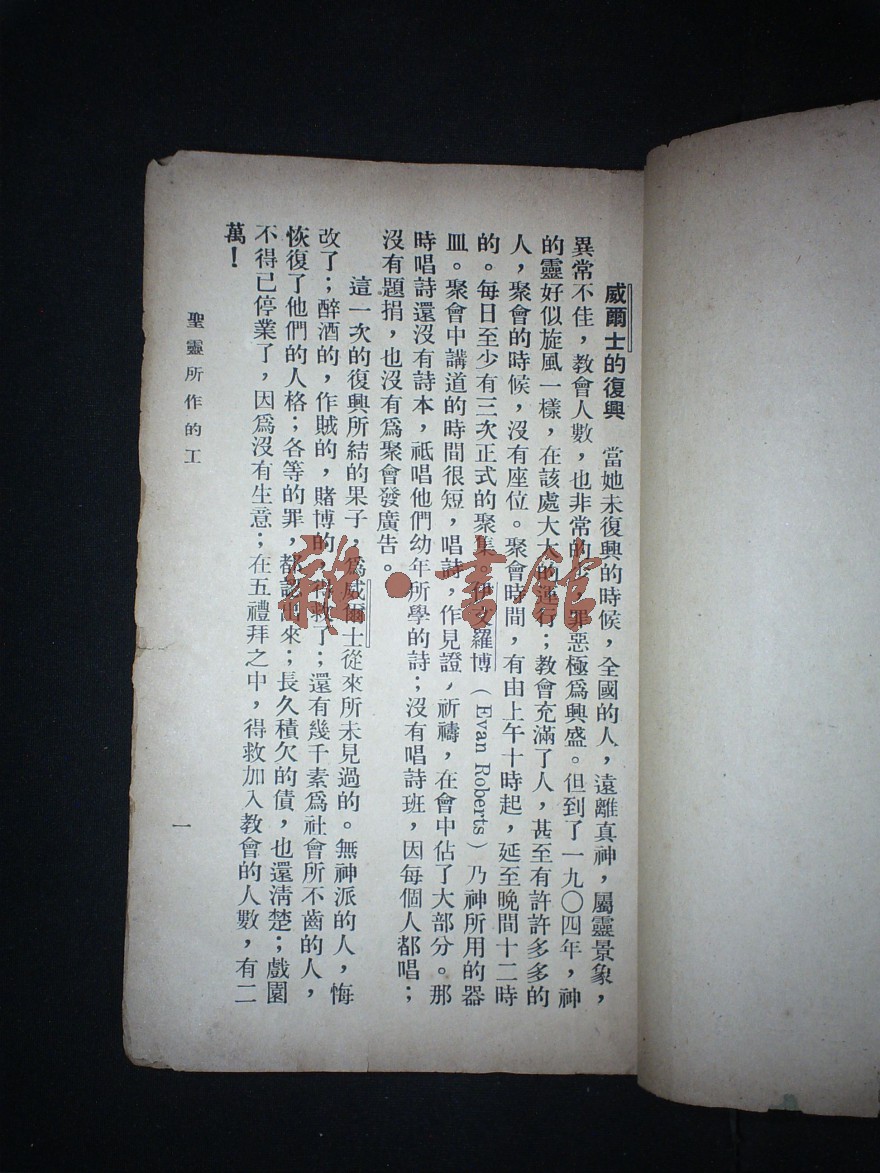 威爾士的復興　當她未復興的時候，全國的人，遠離真神，屬靈景象，
異常不佳，教會人數，也非常的少，罪惡極爲興盛。但到了一九〇四年，神
的靈好似旋風一樣，在該處大大的運行；教會充滿了人，甚至有許許多多的
人，聚會的時候，沒有座位。聚會時間，有由上午十時起，延至晚間十二時
的。每日至少有三次正式的聚集。伊文羅博（Evan Roberts）乃神所用的器
皿。聚會中講道的時間很短，唱詩，作見證，祈禱，在會中佔了大部分。那
時唱詩還沒有詩本，祇唱他們幼年所學的詩；沒有唱詩班，因每個人都唱；
沒有題捐，也沒有爲聚會發廣告。
這一次的復興所結的果子，爲威爾士從來所未見過的。無神派的人，悔
改了；醉酒的，作賊的，賭博的，得救了；還有幾千素爲社會所不齒的人，
恢復了他們的人格；各等的罪，都認出來；長久積欠的債，也還清楚；戲園
不得已停業了，因爲沒有生意；在五禮拜之中，得救加入教會的人數，有二
萬！
聖靈所作的工
一
雜·書館